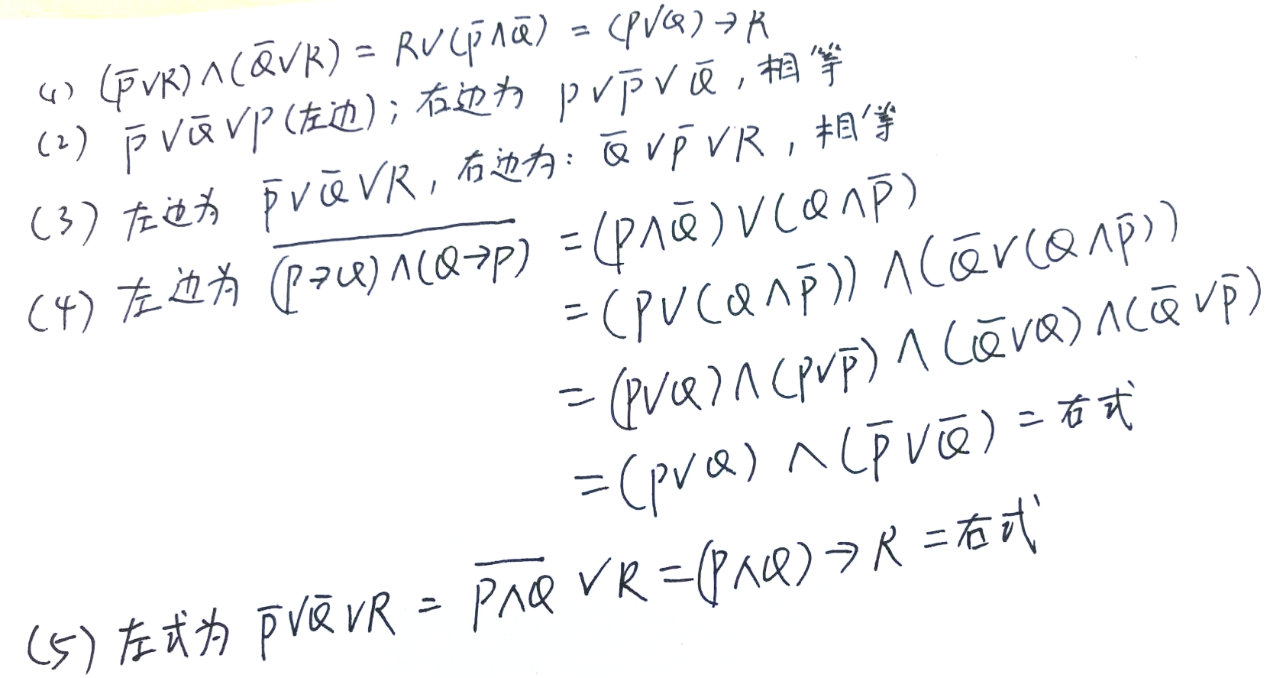 (1) (P̄∨R)∧(Q̄∨R) = R∨(P̄∧Q̄) = (P∨Q)→R
(2) P̄∨Q̄∨P(左边); 右边为 P∨P̄∨Q̄, 相等
(3) 左边为 P̄∨Q̄∨R, 右边为: Q̄∨P̄∨R, 相等
(4) 左边为 \overline{(P→Q)∧(Q→P)} = (P∧Q̄)∨(Q∧P̄)
= (P∨(Q∧P̄))∧(Q̄∨(Q∧P̄))
= (P∨Q)∧(P∨P̄)∧(Q̄∨Q)∧(Q̄∨P̄)
= (P∨Q)∧(P̄∨Q̄) = 右式
(5) 左式为 P̄∨Q̄∨R = \overline{P∧Q}∨R = (P∧Q)→R = 右式